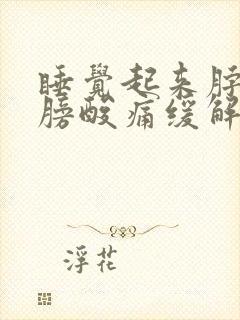 睡覺起来脖
膀酸痛缓解
浮花